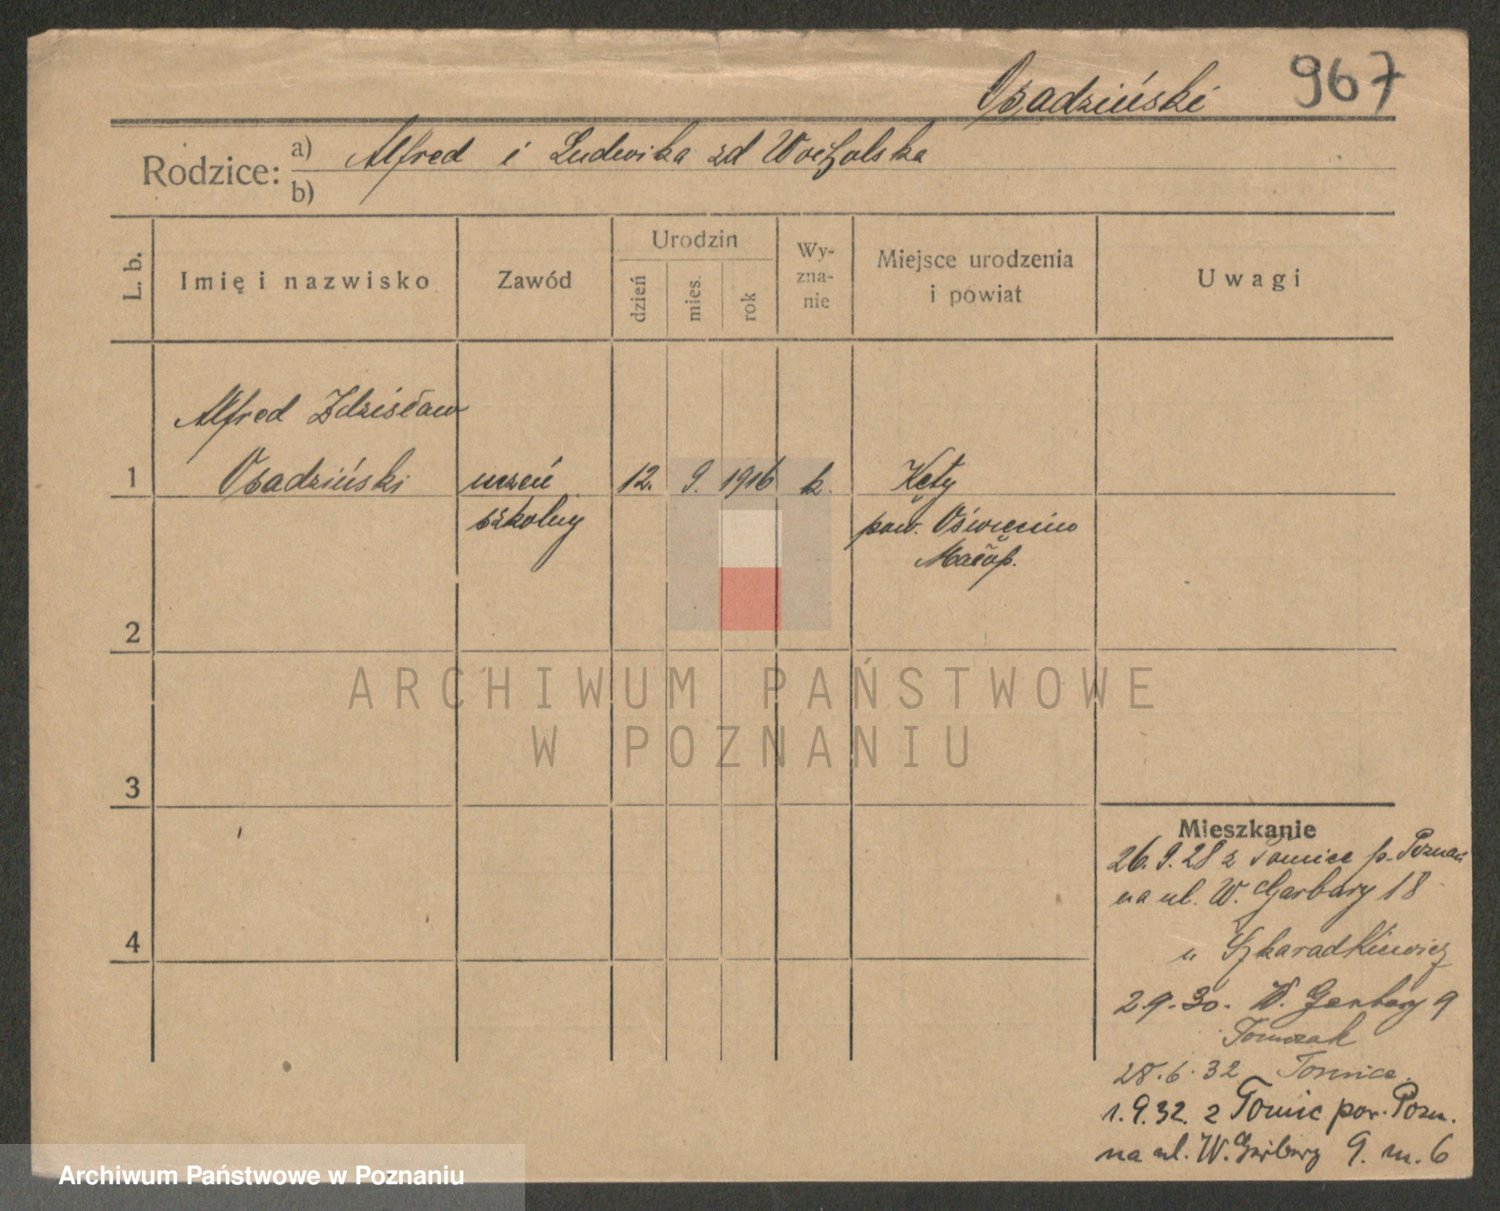 Osadziński 967
Rodzice: a) Alfred i Ludwika zd Wocholska
b)
L. b.
Imię i nazwisko
Zawód
Urodzin
dzień
mies.
rok
Wy-
zna-
nie
Miejsce urodzenia
i powiat
Uwagi
Alfred Zdzisław
1 Osadziński uczeń 12. 9. 1916 k. Kęty
szkolny pow. Oświęcim
Małop.
2
ARCHIWUM PAŃSTWOWE
W POZNANIU
3
Mieszkanie
26.9.28 z Tomice p. Poznań
na ul. W. Garbary 18
u Szkaradkiewicz
2.9.30. W. Garbary 9
Tomczak
28.6.32 Tomice.
1.9.32. z Tomic pow. Pozn.
na ul. W. Garbary 9. m. 6
4
Archiwum Państwowe w Poznaniu